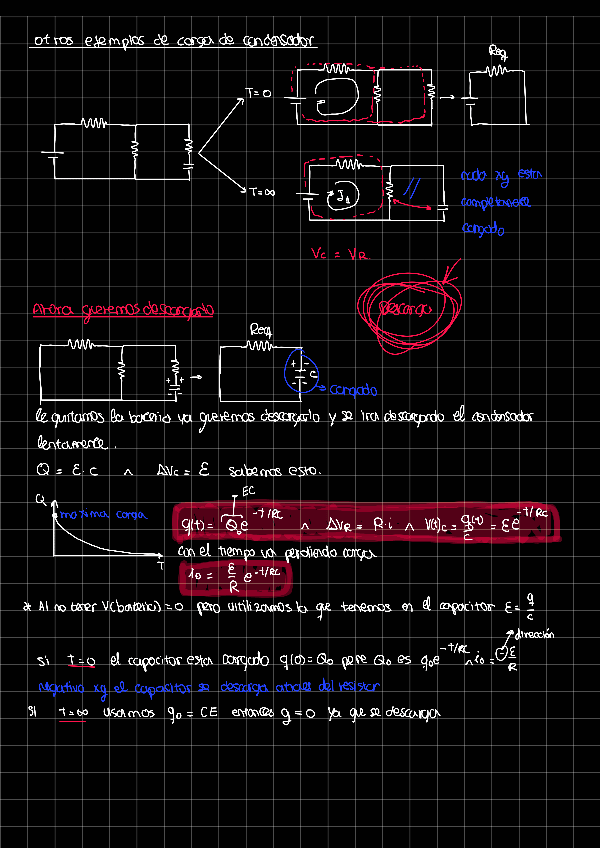 otros ejemplos de carga de condensador
Req
T=0
T=∞
I₁
//
nada xq esta
completamente
cargado
Vc = VR
Descarga
Ahora queremos descargarlo
Req
+ -
+ -
C
cargado
le quitamos la bateria ya queremos descargarlo y se ira descargando el condensador
lentamente.
Q = ε·c ∧ ΔVc = ε sabemos esto.
Q
maxima carga
T
EC
q(t) = Q₀e^-t/RC ∧ ΔVR = R·i ∧ V(t)c = q(t)/c = εe^-t/RC
con el tiempo va perdiendo carga
i₀ = ε/R e^-t/RC
* Al no tener V(bateria)=0 pero utilizamos lo que tenemos en el capacitor ε = q/c
dirección
si T=0 el capacitor esta cargado q(0)=Q₀ pero Q₀ es q₀e^-t/RC ∧ i₀ = -ε/R
negativo xq el capacitor se descarga atraves del resistor
si t=∞ usamos q₀ = CE entonces q=0 ya que se descarga